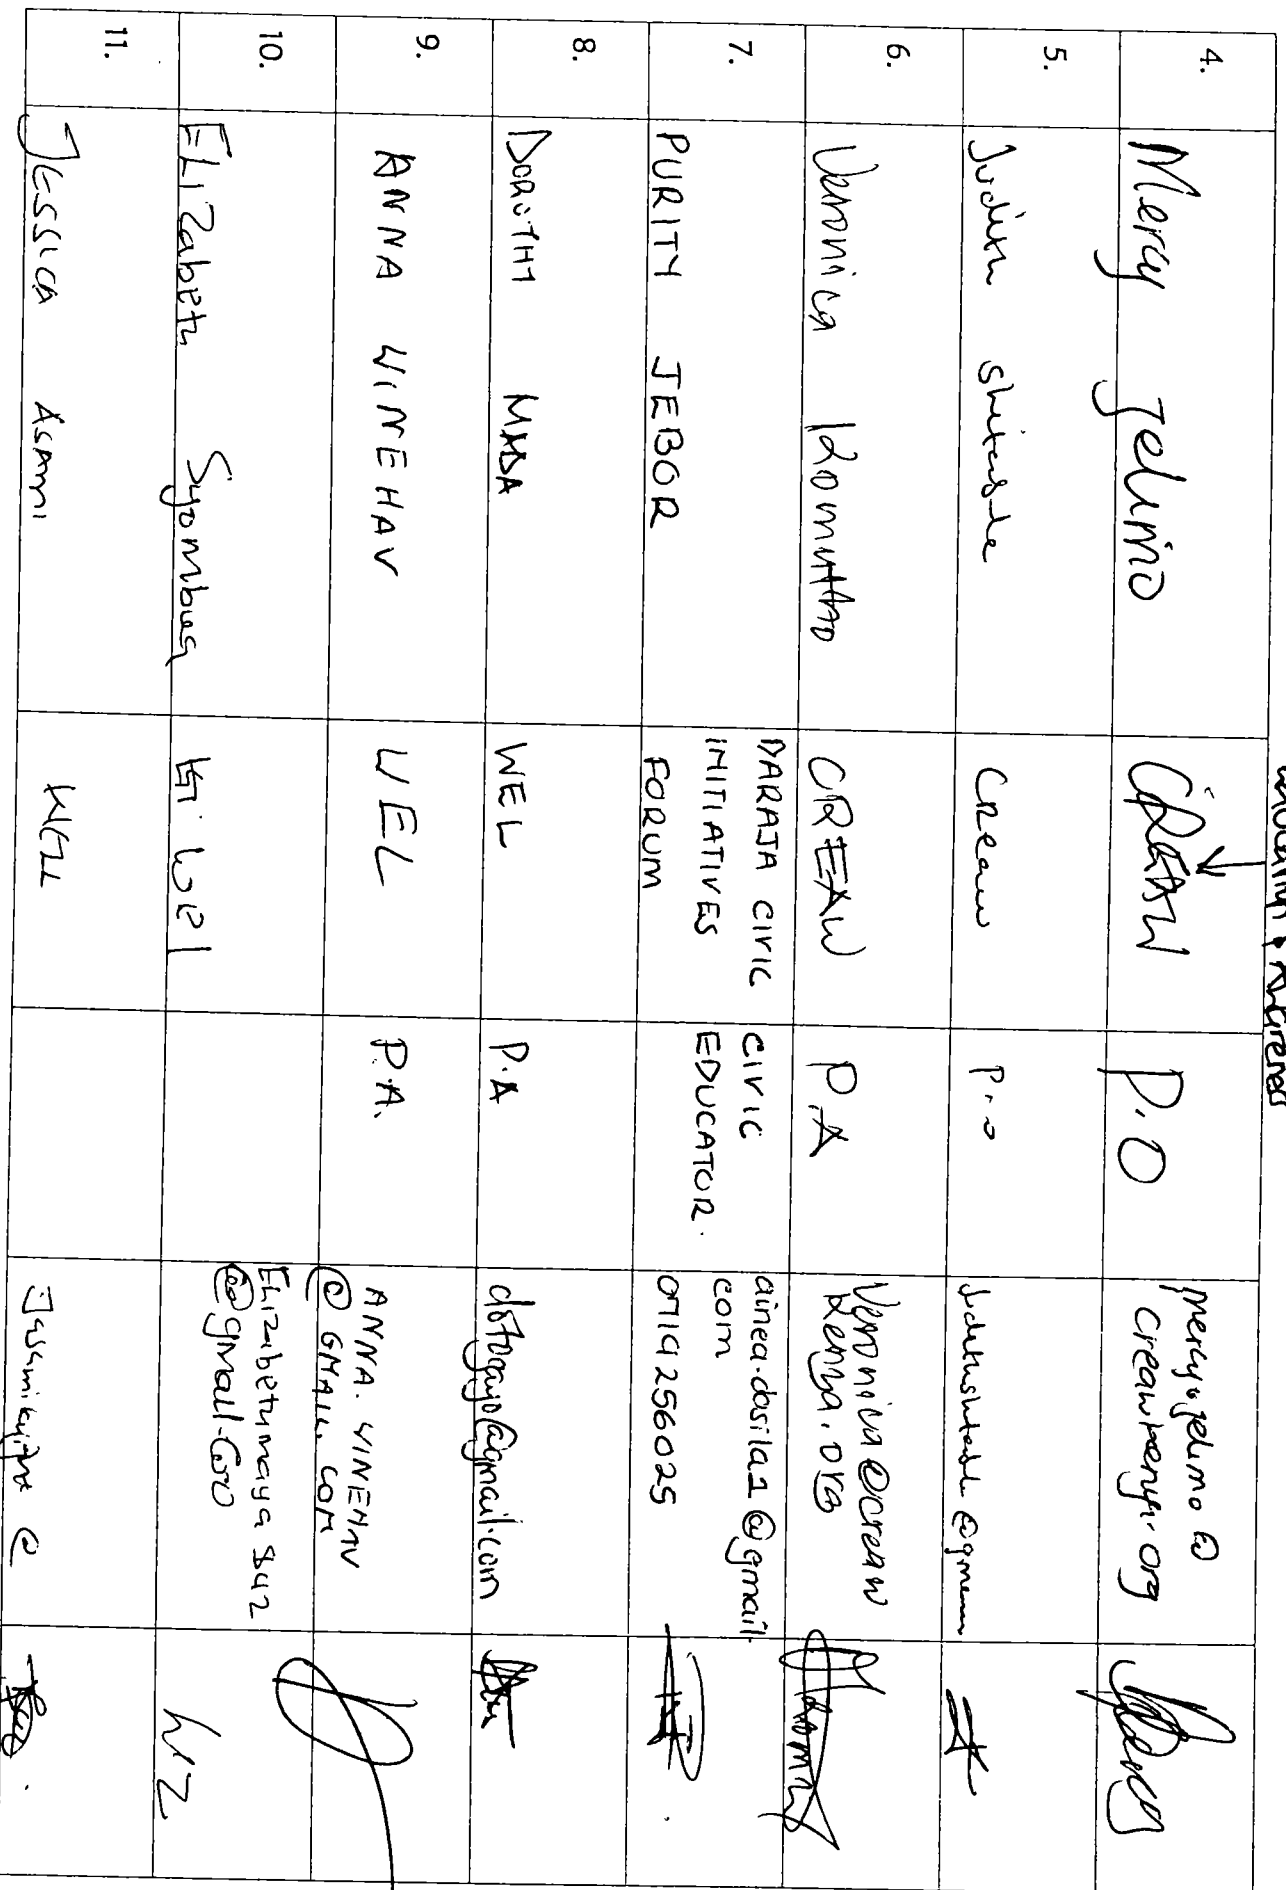 4. Mercy Jelimo CREAW P.O mercy.jelimo@
creawkenya.org
5. Judith Creaw P.O
6. Veronica CREAW P.A Veronica@creaw
kenya.org
7. PURITY JEBOR DARAJA CIVIC INITIATIVES FORUM CIVIC EDUCATOR. ainea.dasila1@gmail.
com
0719256025
8. DOROTHY WEL P.A dotogayo@gmail.com
9. ANNA WINEHAV WEL P.A. ANNA.WINEHAV
@GMAIL.COM
10. Elizabeth Syombua wel Elizabethmaya842
@gmail.com
11. JESSICA ASAMI WEL